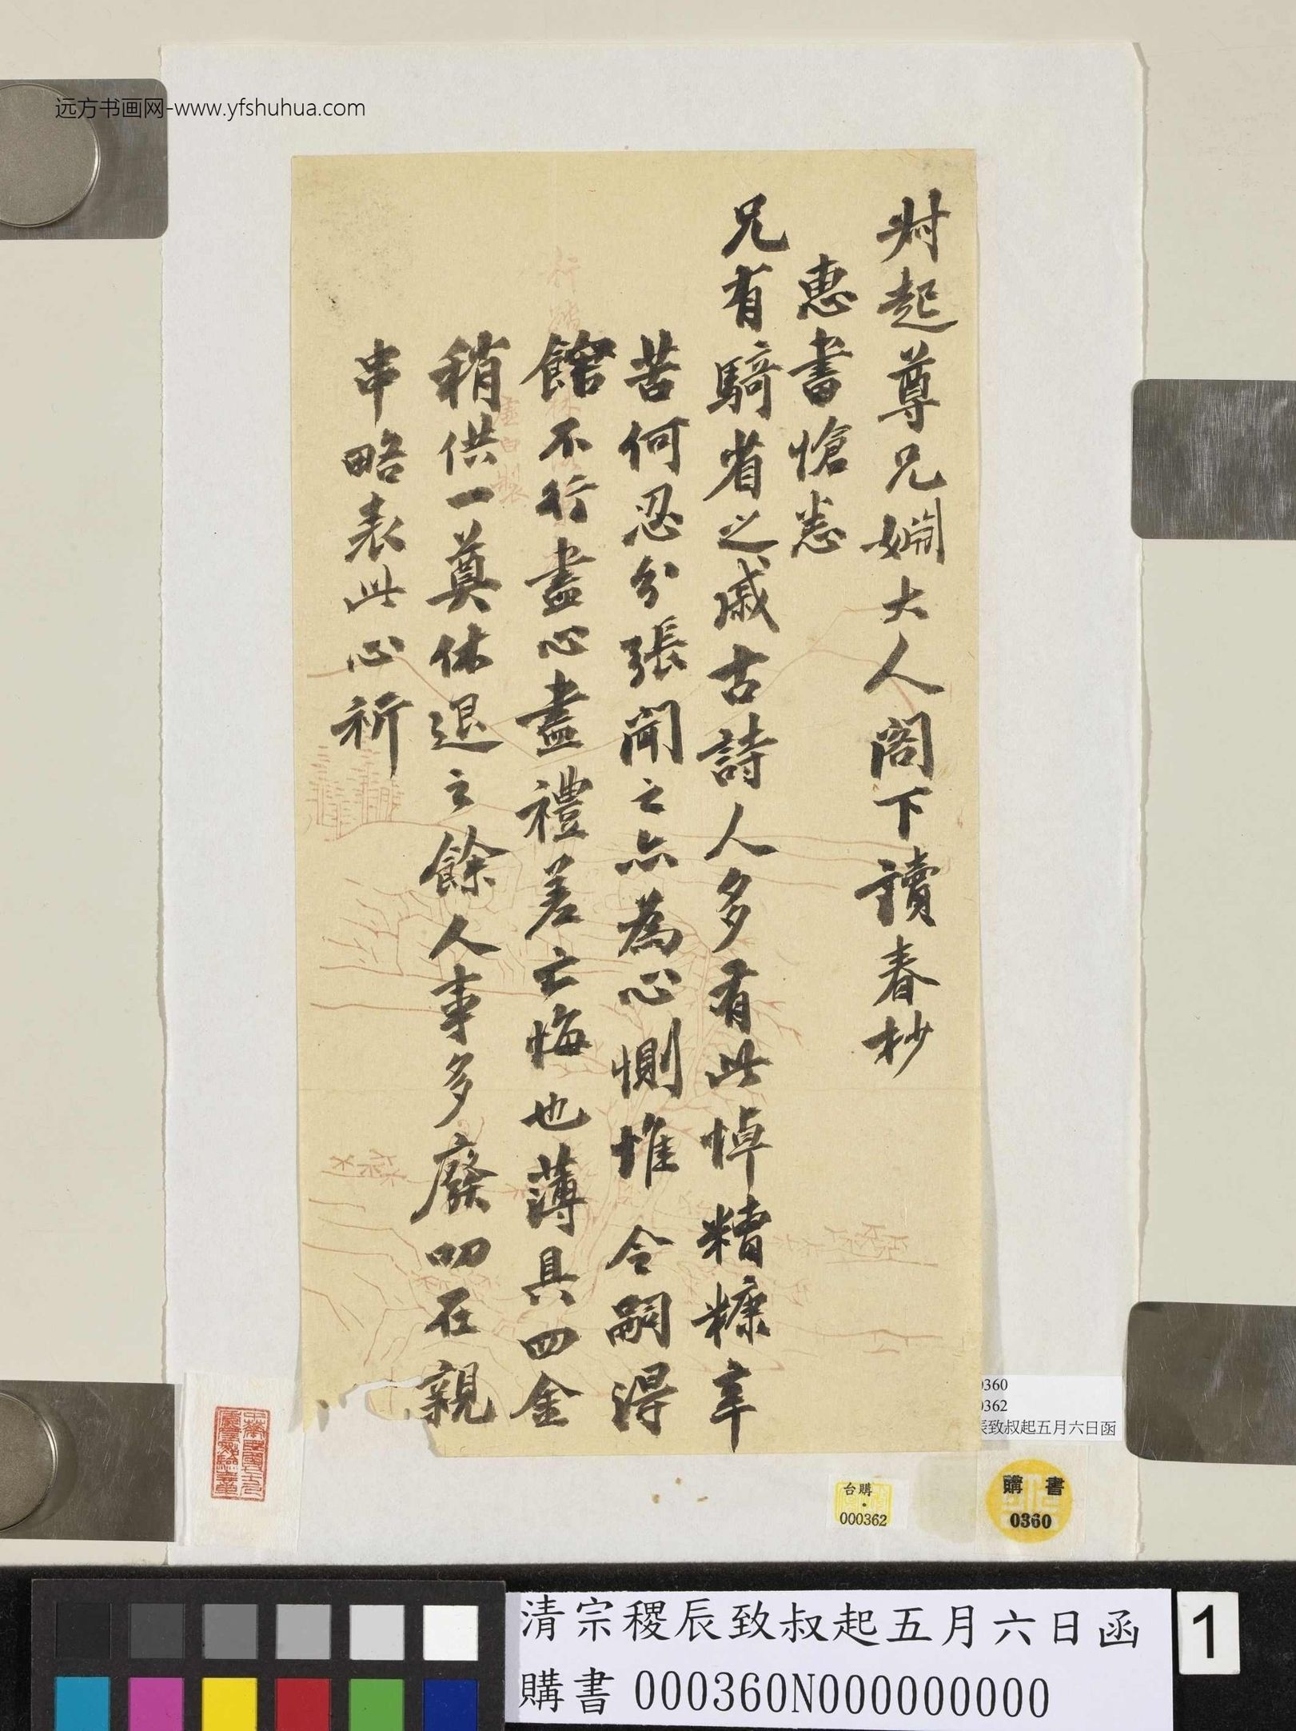 远方书画网-www.yfshuhua.com
尗起尊兄婣大人閤下讀春抄
惠書愴恙
兄有騎省之戚古詩人多有此悼糟糠辛
苦何忍分張聞之亦為心惻惟 令嗣得
館不行盡心盡禮差亡悔也薄具四金
稍供一奠休退之餘人事多廢叨在親
串略表此心祈
0360
0362
辰致叔起五月六日函
購書
0360
台購
000362
清宗稷辰致叔起五月六日函
購書 000360N000000000
1